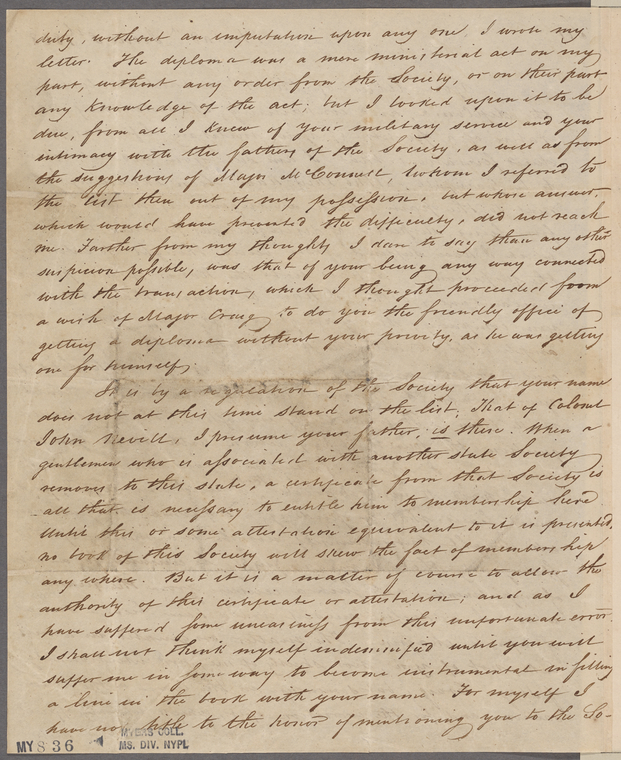 duty, without an imputation upon any one, I wrote my
letter. The diploma was a mere ministerial act on my
part, without any order from the Society, or on their part
any knowledge of the act; but I looked upon it to be
due, from all I knew of your military service and your
intimacy with the fathers of the Society, as well as from
the suggestions of Major McConnell, whom I referred to
the list then out of my possession, but whose answer,
which would have prevented the difficulty, did not reach
me. Farther from my thoughts, I dare to say than any other
suspicion possible, was that of your being any way connected
with the transaction, which I thought proceeded from
a wish of Major Craig to do you the friendly office of
getting a diploma without your privity, as he was getting
one for himself.
It is by a regulation of the Society that your name
does not at this time stand on the list. That of Colonel
John Nevill, I presume your father, is there. When a
gentleman who is associated with another state Society
removes to this state, a certificate from that Society is
all that is necessary to entitle him to membership here
Until this or some attestation equivalent to it is presented,
no book of this Society will shew the fact of membership
any where. But it is a matter of course to allow the
authority of this certificate or attestation; and as I
have suffered some uneasiness from this unfortunate error
I shall not think myself indemnified until you will
suffer me in some way to become instrumental in filling
a line in the book with your name. For myself I
have no title to the honor of mentioning you to the So-
MY 836
MYERS COLL.
MS. DIV. NYPL